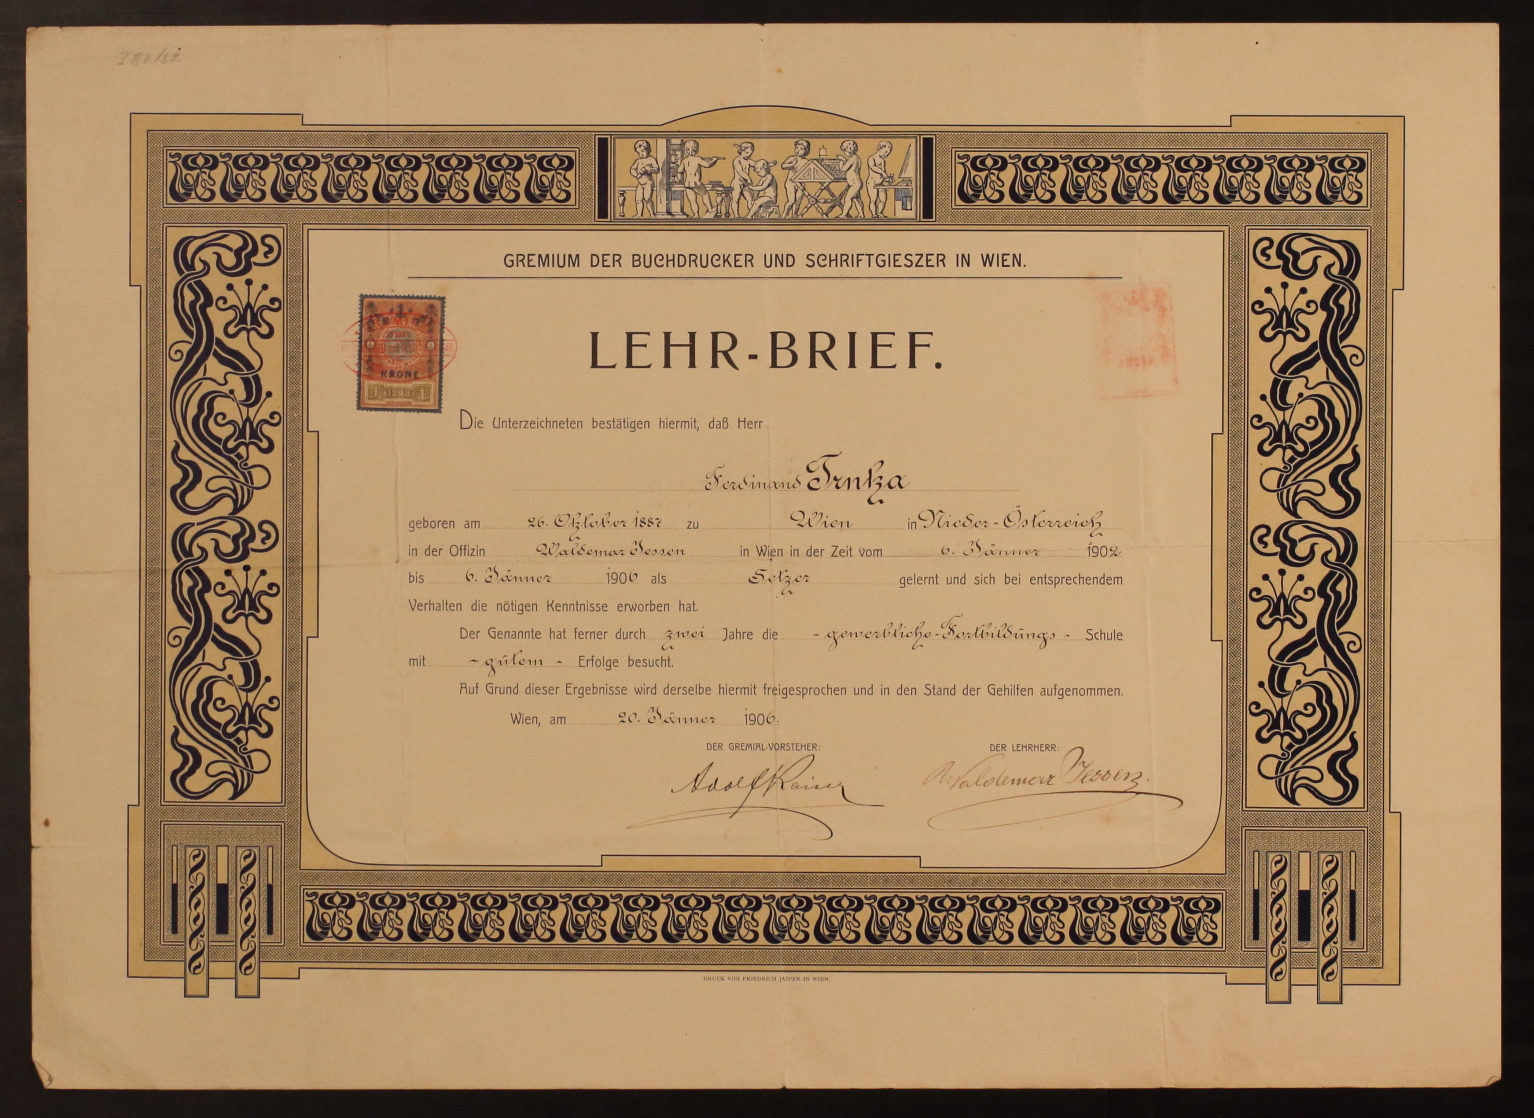 GREMIUM DER BUCHDRUCKER UND SCHRIFTGIESZER IN WIEN.
1
KRONE
1 1898 1
LEHR-BRIEF.
Die Unterzeichneten bestätigen hiermit, daß Herr
Ferdinand Trnka
geboren am 26. Oktober 1887 zu Wien in Nieder-Österreich
in der Offizin Waldemar Jessen in Wien in der Zeit vom 6. Jänner 1902
bis 6. Jänner 1906 als Setzer gelernt und sich bei entsprechendem
Verhalten die nötigen Kenntnisse erworben hat.
Der Genannte hat ferner durch zwei Jahre die - gewerbliche-Fortbildungs - Schule
mit - gutem - Erfolge besucht.
Auf Grund dieser Ergebnisse wird derselbe hiermit freigesprochen und in den Stand der Gehilfen aufgenommen.
Wien, am 20. Jänner 1906.
DER GREMIAL-VORSTEHER: DER LEHRHERR:
Adolf Rainer Waldemar Jessen.
DRUCK VON FRIEDRICH JASPER IN WIEN.